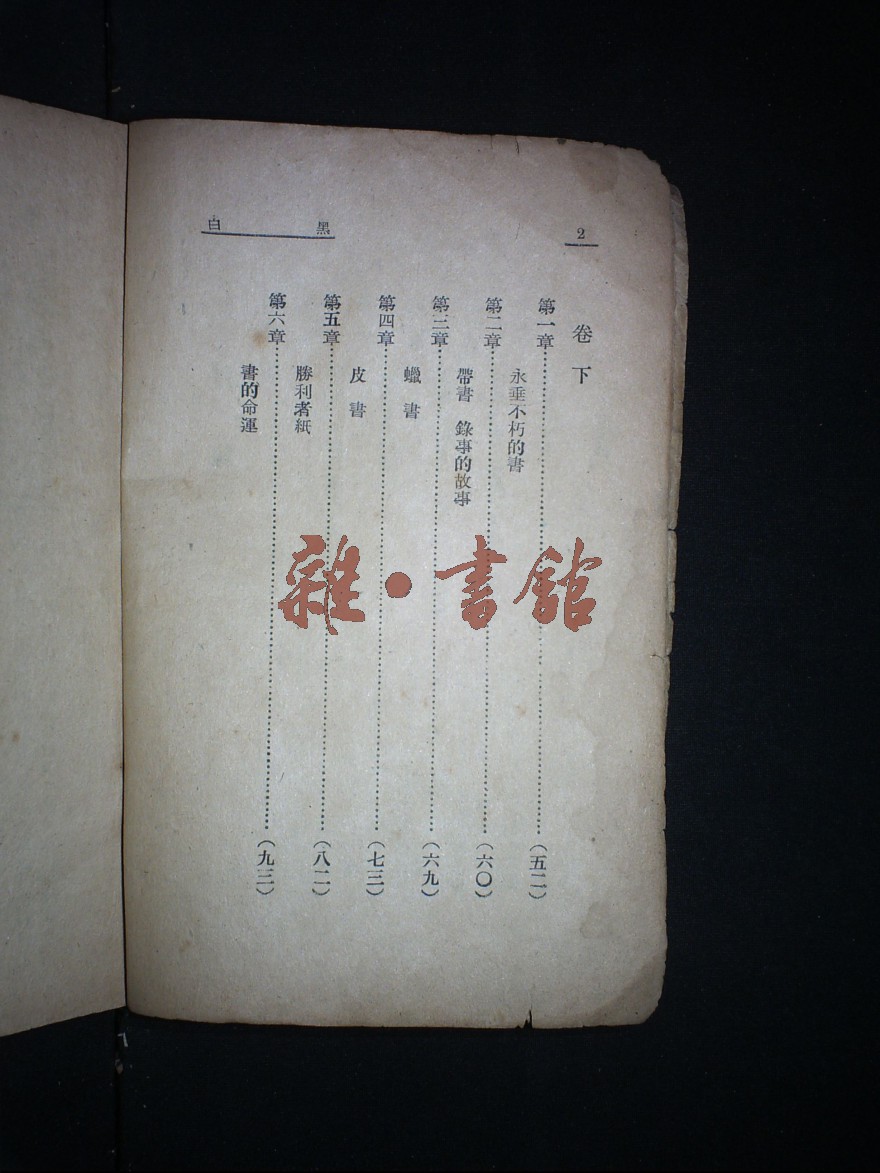 2
黑白
卷下
第一章……(五二)
永垂不朽的書
第二章……(六〇)
帶書 錄事的故事
第三章……(六九)
蠟書
第四章……(七三)
皮書
第五章……(八二)
勝利者紙
第六章……(九三)
書的命運
雜·書館